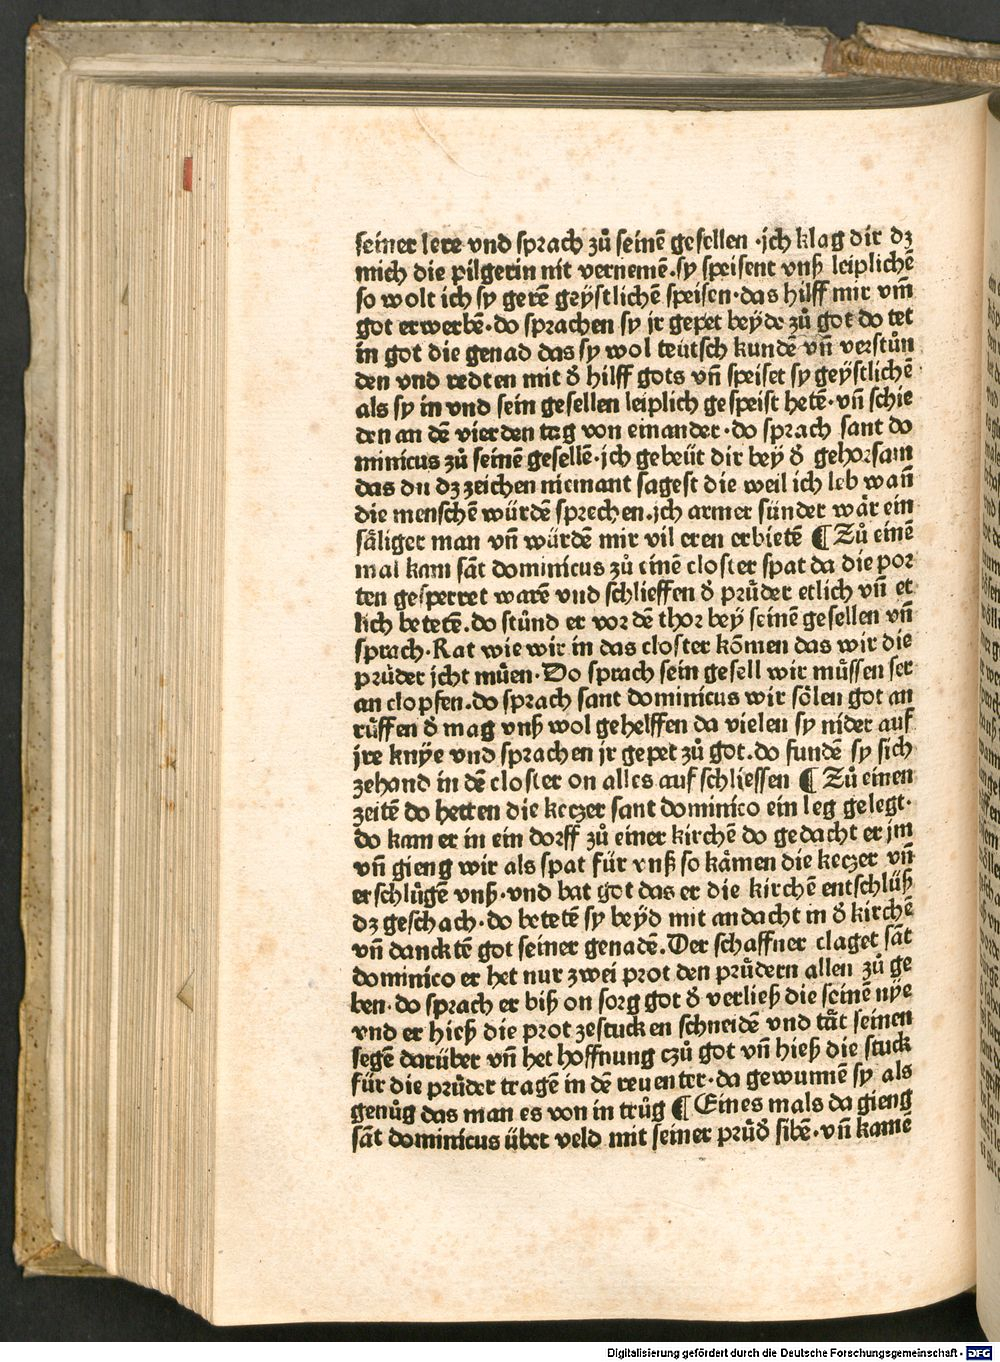 seiner lere vnd sprach zů seinē gesellen ·jch klag dir dz
mich die pilgerin nit vernemē.sy speisent vnß leiplichē
so wolt ich sy gerē geystlichē speisen·das hilff mir vm̄
got erwerbē·do sprachen sy jr gepet beyde zů got do tet
in got die genad das sy wol teütsch kundē vn̄ verstůn
den vnd redten mit d̕ hilff gots vn̄ speiset sy geÿstlichē
als sy in vnd sein gesellen leiplich gespeist hetē·vn̄ schie
den an dē vierden tag von einander·do sprach sant do
minicus zů seinē gesellē·jch gebeüt dir bey d̕ gehorsam
das du dz zeichen niemant sagest die weil ich leb wan̄
die menschē würdē sprechen.jch armer sünder wår ein
såliger man vn̄ würdē mir vil eren erbietē ¶ Zů einē
mal kam sāt dominicus zů einē closter spat da die por
ten gesperret warē vnd schlieffen d̕ průder etlich vn̄ et
lich betetē.do stůnd er vor dē thor bey seinē gesellen vn̄
sprach·Rat wie wir in das closter kōmen das wir die
průder jcht müen·Do sprach sein gesell wir müssen ser
an clopfen.do sprach sant dominicus wir sölen got an
rüffen d̕ mag vnß wol gehelffen da vielen sy nider auf
jre knÿe vnd sprachen jr gepet zů got.do fundē sy sich
zehand in dē closter on alles aufschliessen ¶ Zů einen
zeitē do hetten die keczer sant dominico ein leg gelegt·
do kam er in ein dorff zů einer kirchē do gedacht er jm
vn̄ gieng wir als spat für vnß so kåmen die keczer vn̄
erschlůgē vnß·vnd bat got das er die kirchē entschlüß
dz geschach·do betetē sy beÿd mit andacht in d̕ kirchē
vn̄ dancktē got seiner genadē.Der schaffner claget sāt
dominico er het nur zwei prot den průdern allen zů ge
ben·do sprach er biß on sorg got d̕ verließ die seinē nÿe
vnd er hieß die prot zestucken schneidē vnd tåt seinen
segē darüber vn̄ het hoffnung czů got vn̄ hieß die stuck
für die průder tragē in dē reuenter·da gewunnē sy als
genůg das man es von in trůg ¶ Eines mals da gieng
sāt dominicus über veld mit seiner průd̕ sibē·vn̄ kamē
Digitalisierung gefördert durch die Deutsche Forschungsgemeinschaft - DFG